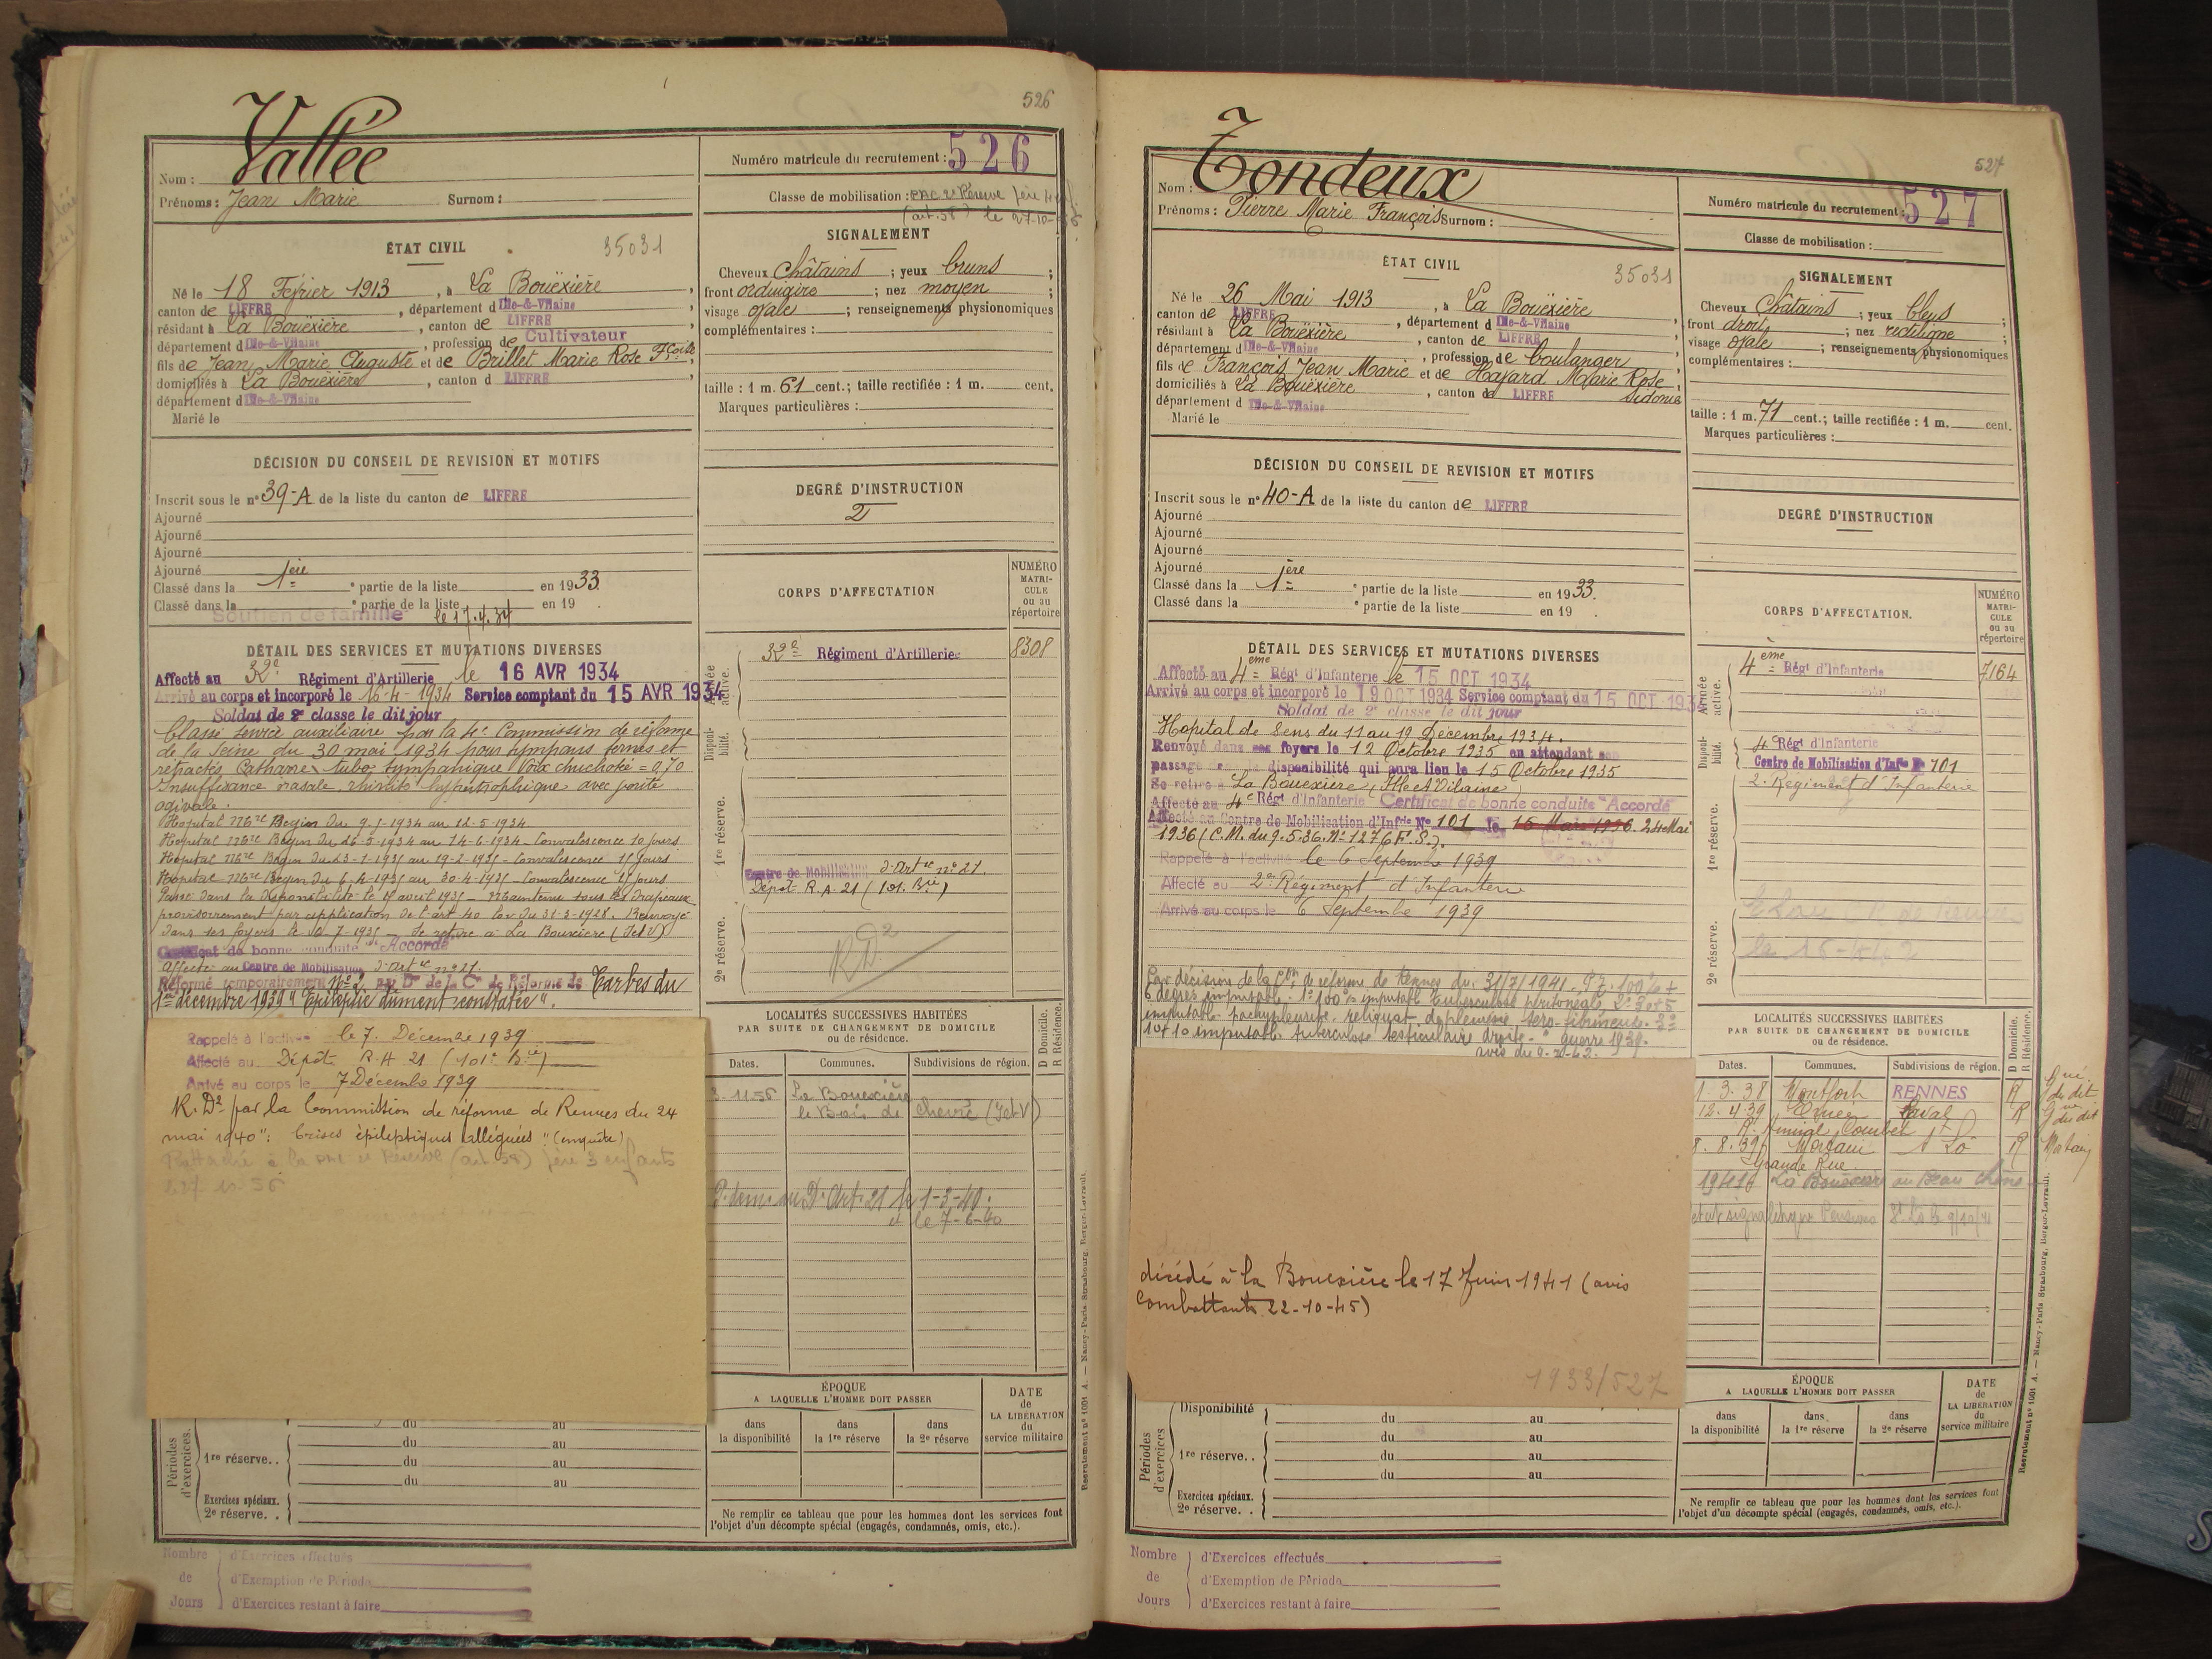 526
Vallée
Nom :
Prénoms : Jean Marie Surnom :
Numéro matricule du recrutement : 526
Classe de mobilisation :
ÉTAT CIVIL
35031
Né le 18 Février 1913, à La Bouëxière,
canton de LIFFRÉ, département d Ille-&-Vilaine
résidant à La Bouëxière, canton de LIFFRÉ
département d Ille-&-Vilaine, profession de Cultivateur
fils de Jean Marie Auguste et de Brillet Marie Rose Fçoise,
domiciliés à La Bouëxière, canton d LIFFRÉ
département d Ille-&-Vilaine
Marié le
SIGNALEMENT
Cheveux Châtains ; yeux bruns ;
front ; nez moyen ;
visage ovale ; renseignements physionomiques
complémentaires :
taille : 1 m. 61 cent.; taille rectifiée : 1 m. cent.
Marques particulières :
DÉCISION DU CONSEIL DE REVISION ET MOTIFS
Inscrit sous le n° 39-A de la liste du canton de LIFFRÉ
Ajourné
Ajourné
Ajourné
Ajourné
Classé dans la 1ère partie de la liste en 1933.
Classé dans la partie de la liste en 19 .
Soutien de famille le 17.4.34
DEGRÉ D'INSTRUCTION
2
CORPS D'AFFECTATION
NUMÉRO MATRICULE ou au répertoire
Armée active.
32e Régiment d'Artillerie
8308
Disponibilité.
1re réserve.
Centre de Mobilisation d'Artie n° 21.
Dépôt R.A. 21 (101. Bie)
2e réserve.
RD2
DÉTAIL DES SERVICES ET MUTATIONS DIVERSES
Affecté au 32e Régiment d'Artillerie le 16 AVR 1934
Arrivé au corps et incorporé le 16-4-1934 Service comptant du 15 AVR 1934
Soldat de 2e classe le dit jour
Classé service auxiliaire par la 4e Commission de réforme
de la Seine du 30 mai 1934 pour tympans ternes et
rétractés, Catharre tubo tympanique Voix chuchoté = 0,70
Insuffisance nasale, rhinite hypertrophique avec voûte
ogivale.
Hopital Mre Begin du 9-5-1934 au 12-5-1934
Hopital Mre Begin du 26-5-1934 au 14-6-1934 - Convalescence 10 jours
Hopital Mre Begin du 23-1-1935 au 19-2-1935 - Convalescence 15 jours
Hopital Mre Begin du 6-4-1935 au 30-4-1935 - Convalescence 15 jours
Passé dans la disponibilité le 15 avril 1935 - Maintenu sous les drapeaux
provisoirement par application de l'art 40 loi du 31-3-1928. Renvoyé
dans ses foyers le 7 1935 - Se retire à La Bouëxière (I et V)
Certificat de bonne conduite "Accordé"
Affecté au Centre de Mobilisation d'Artie n° 21.
Réformé temporairement N°2 par Don de la Con de Réforme de Tarbes du
1er décembre 1939 " Epilepsie dûment constatée ".
Rappelé à l'activité le 7. Décembre 1939
Affecté au Dépôt R.A 21 (101e Bie)
Arrivé au corps le 7 Décembre 1939
R. D2 par la Commission de réforme de Rennes du 24
mai 1940 : " Crises épileptiques alléguées " (enquête)
LOCALITÉS SUCCESSIVES HABITÉES
PAR SUITE DE CHANGEMENT DE DOMICILE
ou de résidence.
D Domicile.
R Résidence.
Dates. Communes. Subdivisions de région.
3-11-56 La Bouëxière
le Bois de Chevré (I et V)
le 7-6-40
ÉPOQUE
A LAQUELLE L'HOMME DOIT PASSER
dans la disponibilité
dans la 1re réserve
dans la 2e réserve
DATE de LA LIBÉRATION du service militaire
Périodes d'exercices.
du au
1re réserve.. du au
du au
du au
Exercices spéciaux.
2e réserve. .
Ne remplir ce tableau que pour les hommes dont les services font
l'objet d'un décompte spécial (engagés, condamnés, omis, etc.).
Nombre de Jours
d'Exercices effectués
d'Exemption de Période
d'Exercices restant à faire
Recrutement n° 1001 A. — Nancy-Paris-Strasbourg, Berger-Levrault.
527
Tondeux
Nom :
Prénoms : Pierre Marie François Surnom :
Numéro matricule du recrutement : 527
Classe de mobilisation :
ÉTAT CIVIL
35031
Né le 26 Mai 1913, à La Bouëxière,
canton de LIFFRÉ, département d Ille-&-Vilaine
résidant à La Bouëxière, canton de LIFFRÉ
département d Ille-&-Vilaine, profession de boulanger
fils de François Jean Marie et de Havard Marie Rose Sidonie,
domiciliés à La Bouëxière, canton d LIFFRÉ
département d Ille-&-Vilaine
Marié le
SIGNALEMENT
Cheveux Châtains ; yeux bleus ;
front droit ; nez rectiligne ;
visage ovale ; renseignements physionomiques
complémentaires :
taille : 1 m. 71 cent.; taille rectifiée : 1 m. cent.
Marques particulières :
DÉCISION DU CONSEIL DE REVISION ET MOTIFS
Inscrit sous le n° 40-A de la liste du canton de LIFFRÉ
Ajourné
Ajourné
Ajourné
Ajourné
Classé dans la 1ère partie de la liste en 1933.
Classé dans la partie de la liste en 19 .
DEGRÉ D'INSTRUCTION
CORPS D'AFFECTATION.
NUMÉRO MATRICULE ou au répertoire
Armée active.
4ème Régt d'Infanterie
7164
Disponibilité.
4e Régt d'Infanterie
Centre de Mobilisation d'Infie N° 101
2e Régiment d'Infanterie
1re réserve.
2e réserve.
DÉTAIL DES SERVICES ET MUTATIONS DIVERSES
Affecté au 4ème Régt d'Infanterie le 15 OCT 1934
Arrivé au corps et incorporé le 19 OCT 1934 Service comptant du 15 OCT 1934
Soldat de 2e classe le dit jour
Hopital de Sens du 11 au 19 Décembre 1934.
Renvoyé dans ses foyers le 12 Octobre 1935 en attendant son
passage dans la disponibilité qui aura lieu le 15 Octobre 1935
Se retire à La Bouëxière (Ille et Vilaine)
Affecté au 4e Régt d'Infanterie Certificat de bonne conduite "Accordé"
Affecté au Centre de Mobilisation d'Infie N° 101 le 15 Mai 1936. 24 Mai
1936 (C.M. du 9.5.36. N° 1276 F.S.).
Rappelé à l'activité le 6 Septembre 1939
Affecté au 2e Régiment d'Infanterie
Arrivé au corps le 6 Septembre 1939
Par décision de la Con de réforme de Rennes du 31/7/1941. 100% +
6 degrés imputable. 1° 100% imputable tuberculose péritonéale 2° 30+5
imputable pachypleurite, reliquat de pleurésie séro-fibrineuse. 3°
10+10 imputable tuberculose testiculaire droite. " guerre 1939.
décédé à la Bouexière le 17 Juin 1941 (avis
combattants 22-10-45)
1933/527
LOCALITÉS SUCCESSIVES HABITÉES
PAR SUITE DE CHANGEMENT DE DOMICILE
ou de résidence.
D Domicile.
R Résidence.
Dates. Communes. Subdivisions de région.
1.3.38 Montfort RENNES R
12.4.39 Laval R
8.8.39 Mortain St Lô R
Grande Rue
1941 La Bouëxière
ÉPOQUE
A LAQUELLE L'HOMME DOIT PASSER
dans la disponibilité
dans la 1re réserve
dans la 2e réserve
DATE de LA LIBÉRATION du service militaire
Périodes d'exercices
Disponibilité du au
du au
1re réserve.. du au
du au
Exercices spéciaux.
2e réserve. .
Ne remplir ce tableau que pour les hommes dont les services font
l'objet d'un décompte spécial (engagés, condamnés, omis, etc.).
Nombre de Jours
d'Exercices effectués
d'Exemption de Période
d'Exercices restant à faire
Recrutement n° 1001 A. — Nancy-Paris-Strasbourg, Berger-Levrault.